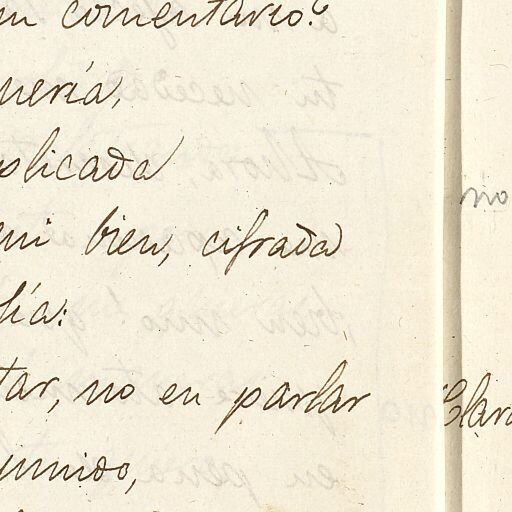 un comentario?
uería,
plicada
mi bien, cifrada
lía:
tar, no en parlar
unido,
no
Clar